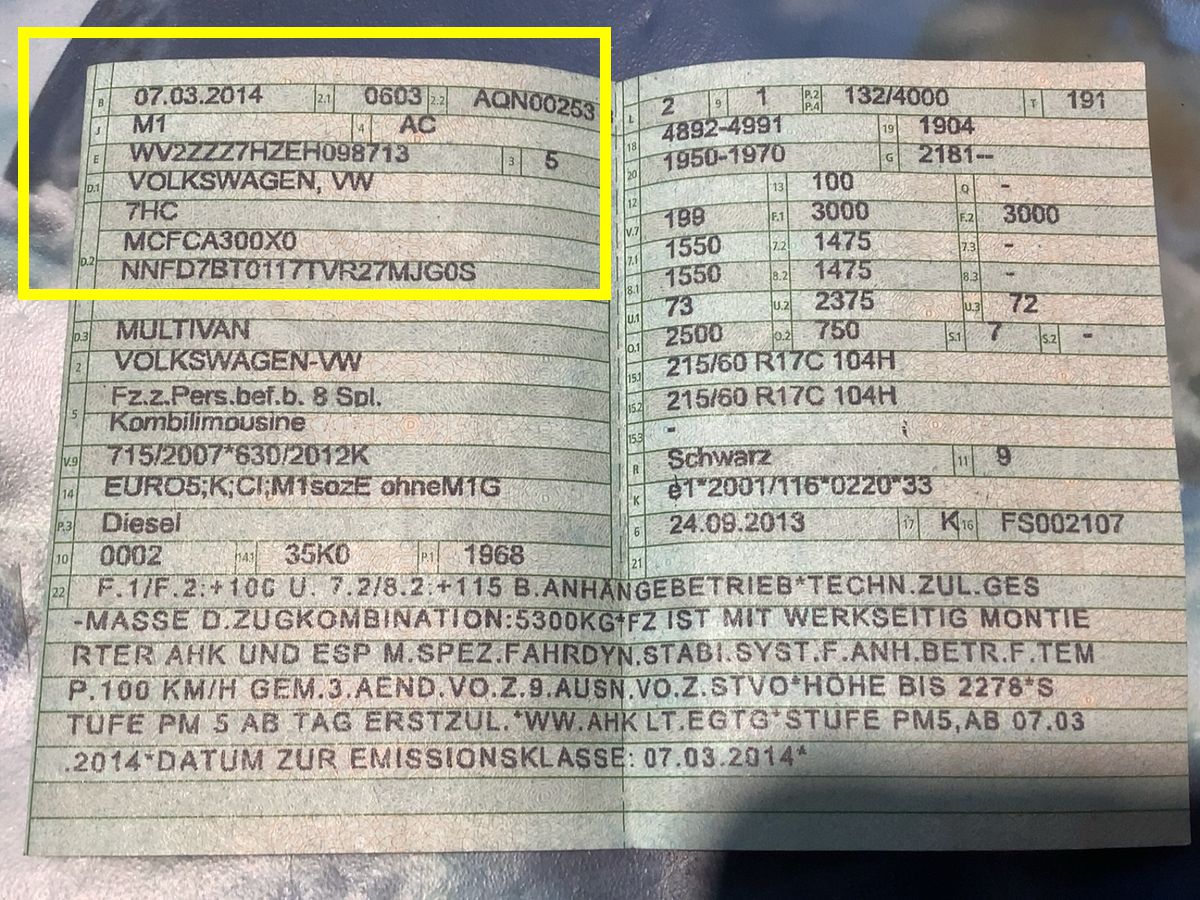 B 07.03.2014 2.1 0603 2.2 AQN00253
J M1 4 AC
E WV2ZZZ7HZEH098713 3 5
D.1 VOLKSWAGEN, VW
7HC
D.2 MCFCA300X0
NNFD7BT0117TVR27MJG0S
D.3 MULTIVAN
2 VOLKSWAGEN-VW
5 Fz.z.Pers.bef.b. 8 Spl.
Kombilimousine
V.9 715/2007*630/2012K
14 EURO5;K;CI,M1sozE ohneM1G
P.3 Diesel
10 0002 14.1 35K0 P.1 1968
L 2 9 1 P.2 P.4 132/4000 T 191
18 4892-4991 19 1904
20 1950-1970 G 2181--
12 13 100 Q -
V.7 199 F.1 3000 F.2 3000
7.1 1550 7.2 1475 7.3 -
8.1 1550 8.2 1475 8.3 -
U.1 73 U.2 2375 U.3 72
O.1 2500 O.2 750 S.1 7 S.2 -
15.1 215/60 R17C 104H
15.2 215/60 R17C 104H
15.3 -
R Schwarz 11 9
K e1*2001/116*0220*33
6 24.09.2013 17 K 16 FS002107
21
22 F.1/F.2:+100 U. 7.2/8.2:+115 B.ANHÄNGEBETRIEB*TECHN.ZUL.GES
-MASSE D.ZUGKOMBINATION:5300KG*FZ IST MIT WERKSEITIG MONTIE
RTER AHK UND ESP M.SPEZ.FAHRDYN.STABI.SYST.F.ANH.BETR.F.TEM
P.100 KM/H GEM.3.AEND.VO.Z.9.AUSN.VO.Z.STVO*HÖHE BIS 2278*S
TUFE PM 5 AB TAG ERSTZUL.*WW.AHK LT.EGTG*STUFE PM5,AB 07.03
.2014*DATUM ZUR EMISSIONSKLASSE: 07.03.2014*